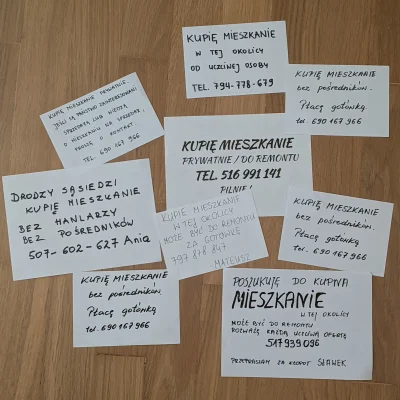 KUPIĘ MIESZKANIE
W TEJ OKOLICY
OD UCZCIWEJ OSOBY
TEL. 794-778-679
KUPIĘ MIESZKANIE
bez pośredników.
Płacę gotówką
tel. 690 167 966
KUPIĘ MIESZKANIE PRYWATNIE.
JEŚLI SĄ PAŃSTWO ZAINTERESOWANI
SPRZEDAŻĄ LUB WIEDZĄ
O MIESZKANIU NA SPRZEDAŻ,
PROSZĘ O KONTAKT.
TEL. 690 167 966
KUPIĘ MIESZKANIE
PRYWATNIE / DO REMONTU
TEL. 516 991 141
PILNE!
DRODZY SĄSIEDZI
KUPIĘ MIESZKANIE
BEZ HANLARZY
BEZ POŚREDNIKÓW
507-602-627 Ania
KUPIĘ MIESZKANIE
W TEJ OKOLICY
MOŻE BYĆ DO REMONTU
ZA GOTÓWKĘ
797 878 847
MATEUSZ
KUPIĘ MIESZKANIE
bez pośredników.
Płacę gotówką
tel. 690 167 966
KUPIĘ MIESZKANIE
bez pośredników.
Płacę gotówką
tel. 690 167 966
POSZUKUJĘ DO KUPNA
MIESZKANIE
W TEJ OKOLICY
MOŻE BYĆ DO REMONTU
ROZWAŻĘ KAŻDĄ UCZCIWĄ OFERTĘ
517 939 096
PRZEPRASZAM ZA KŁOPOT SŁAWEK